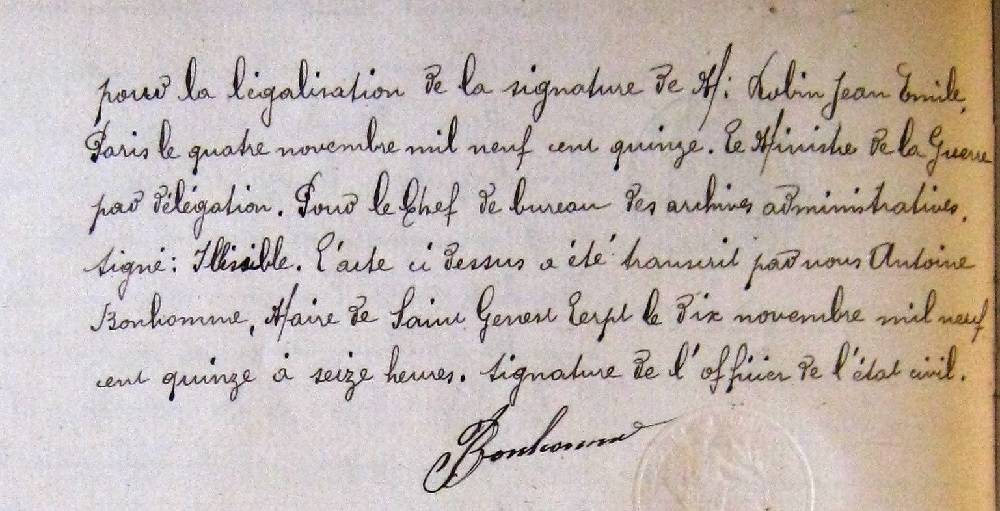 pour la légalisation de la signature de M: Robin Jean Emile.
Paris le quatre novembre mil neuf cent quinze. Le Ministre de la Guerre
par délégation. Pour le Chef de bureau des archives administratives.
signé: Illisible. L'acte ci dessus a été transcrit par nous Antoine
Bonhomme, Maire de Saint Genest Lerpt le dix novembre mil neuf
cent quinze à seize heures. Signature de l'officier de l'état civil.
Bonhomme